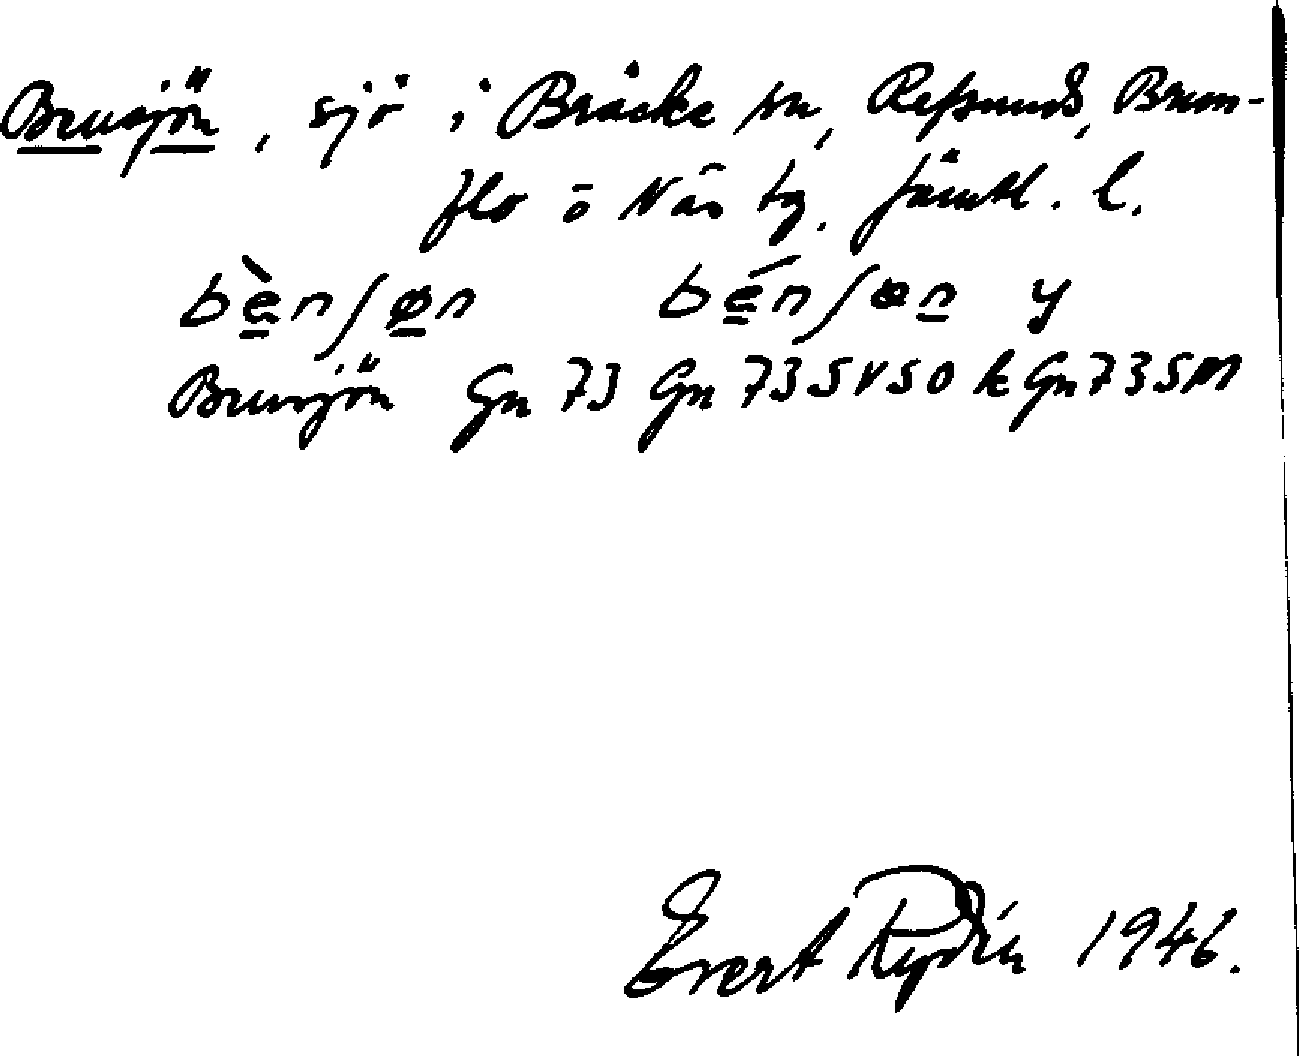 Brusjön, sjö i Bräcke sn, Refsunds, Brun-
flo o Näs tg. Jämtl. l.
bènʃøn bénʃøn y
Brunsjön Gn 73 Gn 73 SVSO k Gn 73 SM
Evert Rydin 1946.